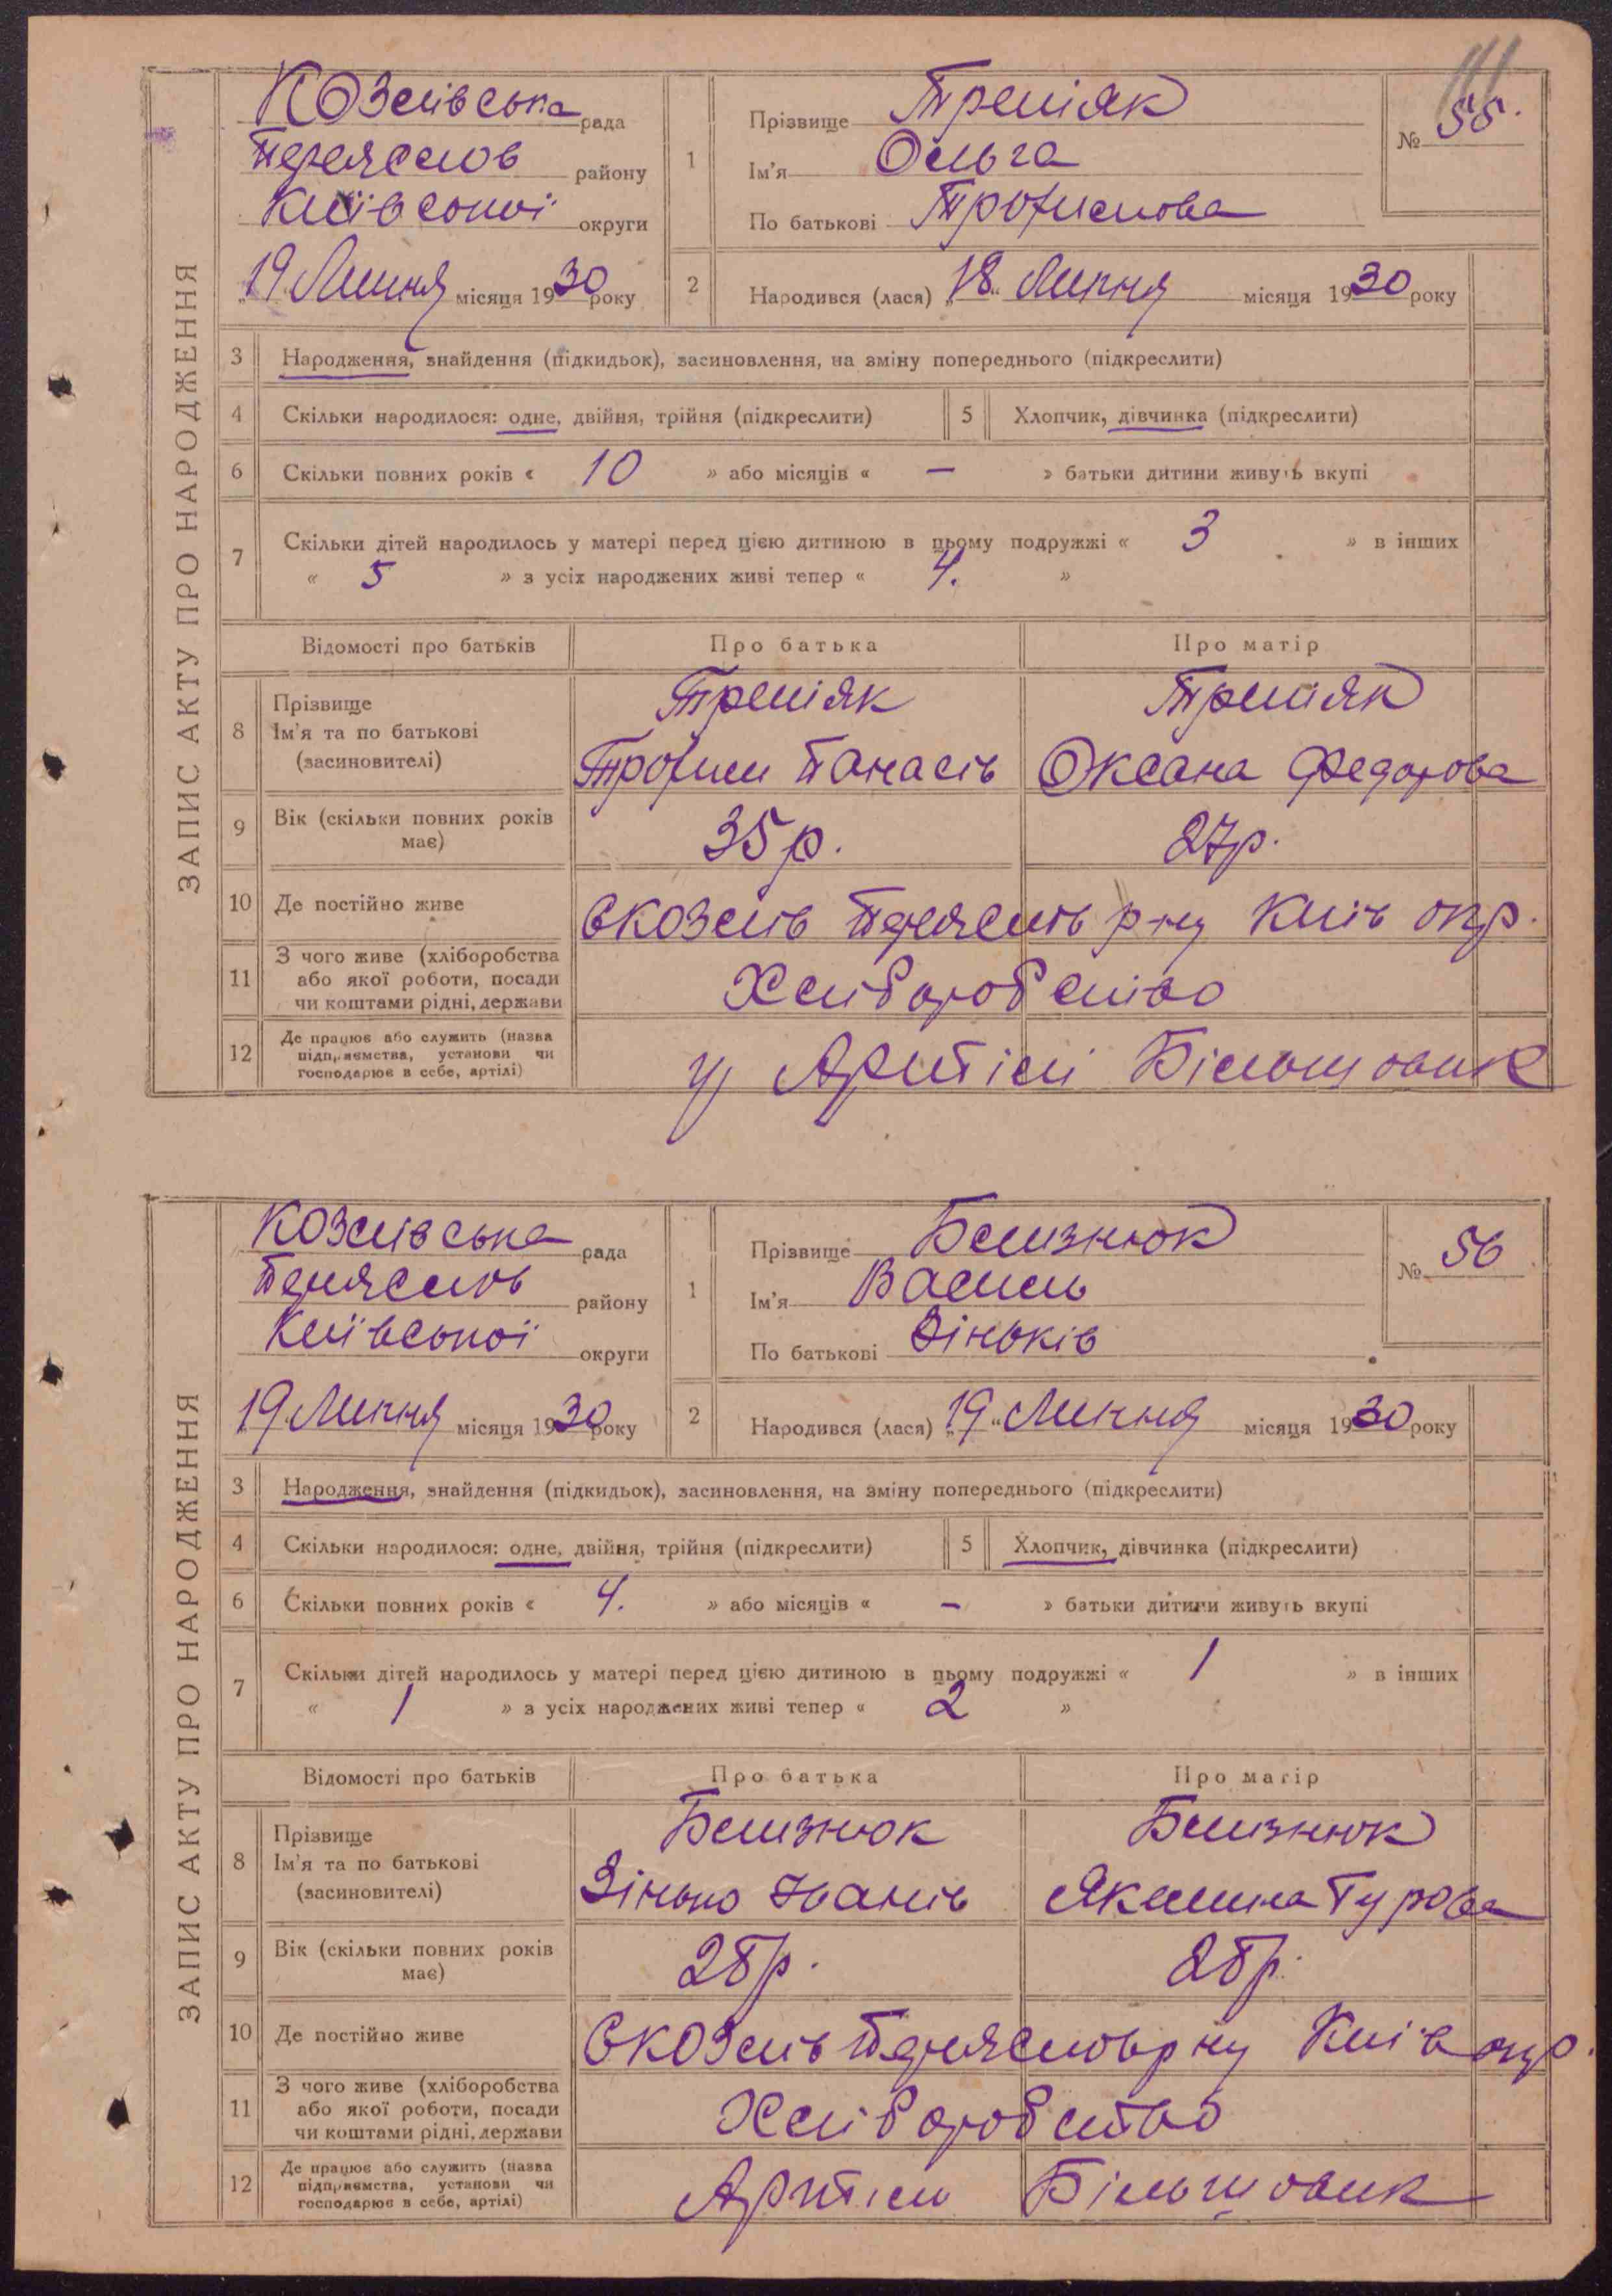 111
ЗАПИС АКТУ ПРО НАРОДЖЕННЯ
Козлівська рада
Переяслов району
Київської округи
19 Липня місяця 1930 року
1
Прізвище Треміяк
Ім'я Ольга
По батькові Трохимова
№ 55.
2
Народився (лася) „18“ Липня місяця 1930 року
3 Народження, знайдення (підкидьок), засиновлення, на зміну попереднього (підкреслити)
4 Скільки народилося: одне, двійня, трійня (підкреслити) 5 Хлопчик, дівчинка (підкреслити)
6 Скільки повних років « 10 » або місяців « — » батьки дитини живуть вкупі
7 Скільки дітей народилось у матері перед цією дитиною в цьому подружжі « 3 » в інших
« 5 » з усіх народжених живі тепер « 4. »
Відомості про батьків Про батька Про матір
8 Прізвище
Ім'я та по батькові
(засиновителі)
Треміяк Треміяк
Трохим Панасів Оксана Федорова
9 Вік (скільки повних років має) 35 р. 27 р.
10 Де постійно живе с Козлів Переяслів р-ну Київ окр.
11 З чого живе (хліборобства
або якої роботи, посади
чи коштами рідні, держави
Хліборобство
12 Де працює або служить (назва
підприємства, установи чи
господарює в себе, артілі)
у Артілі Більшовик
ЗАПИС АКТУ ПРО НАРОДЖЕННЯ
Козлівська рада
Переяслов району
Київської округи
19 Липня місяця 1930 року
1
Прізвище Близнюк
Ім'я Василь
По батькові Зіньків
№ 56
2
Народився (лася) „19“ Липня місяця 1930 року
3 Народження, знайдення (підкидьок), засиновлення, на зміну попереднього (підкреслити)
4 Скільки народилося: одне, двійня, трійня (підкреслити) 5 Хлопчик, дівчинка (підкреслити)
6 Скільки повних років « 4. » або місяців « — » батьки дитини живуть вкупі
7 Скільки дітей народилось у матері перед цією дитиною в цьому подружжі « 1 » в інших
« 1 » з усіх народжених живі тепер « 2 »
Відомості про батьків Про батька Про матір
8 Прізвище
Ім'я та по батькові
(засиновителі)
Близнюк Близнюк
Зінько Іванів Якилина Гурова
9 Вік (скільки повних років має)
10 Де постійно живе с Козлів Переяслов р ну Київ окр.
11 З чого живе (хліборобства
або якої роботи, посади
чи коштами рідні, держави
Хліборобство
12 Де працює або служить (назва
підприємства, установи чи
господарює в себе, артілі)
Артіль Більшовик